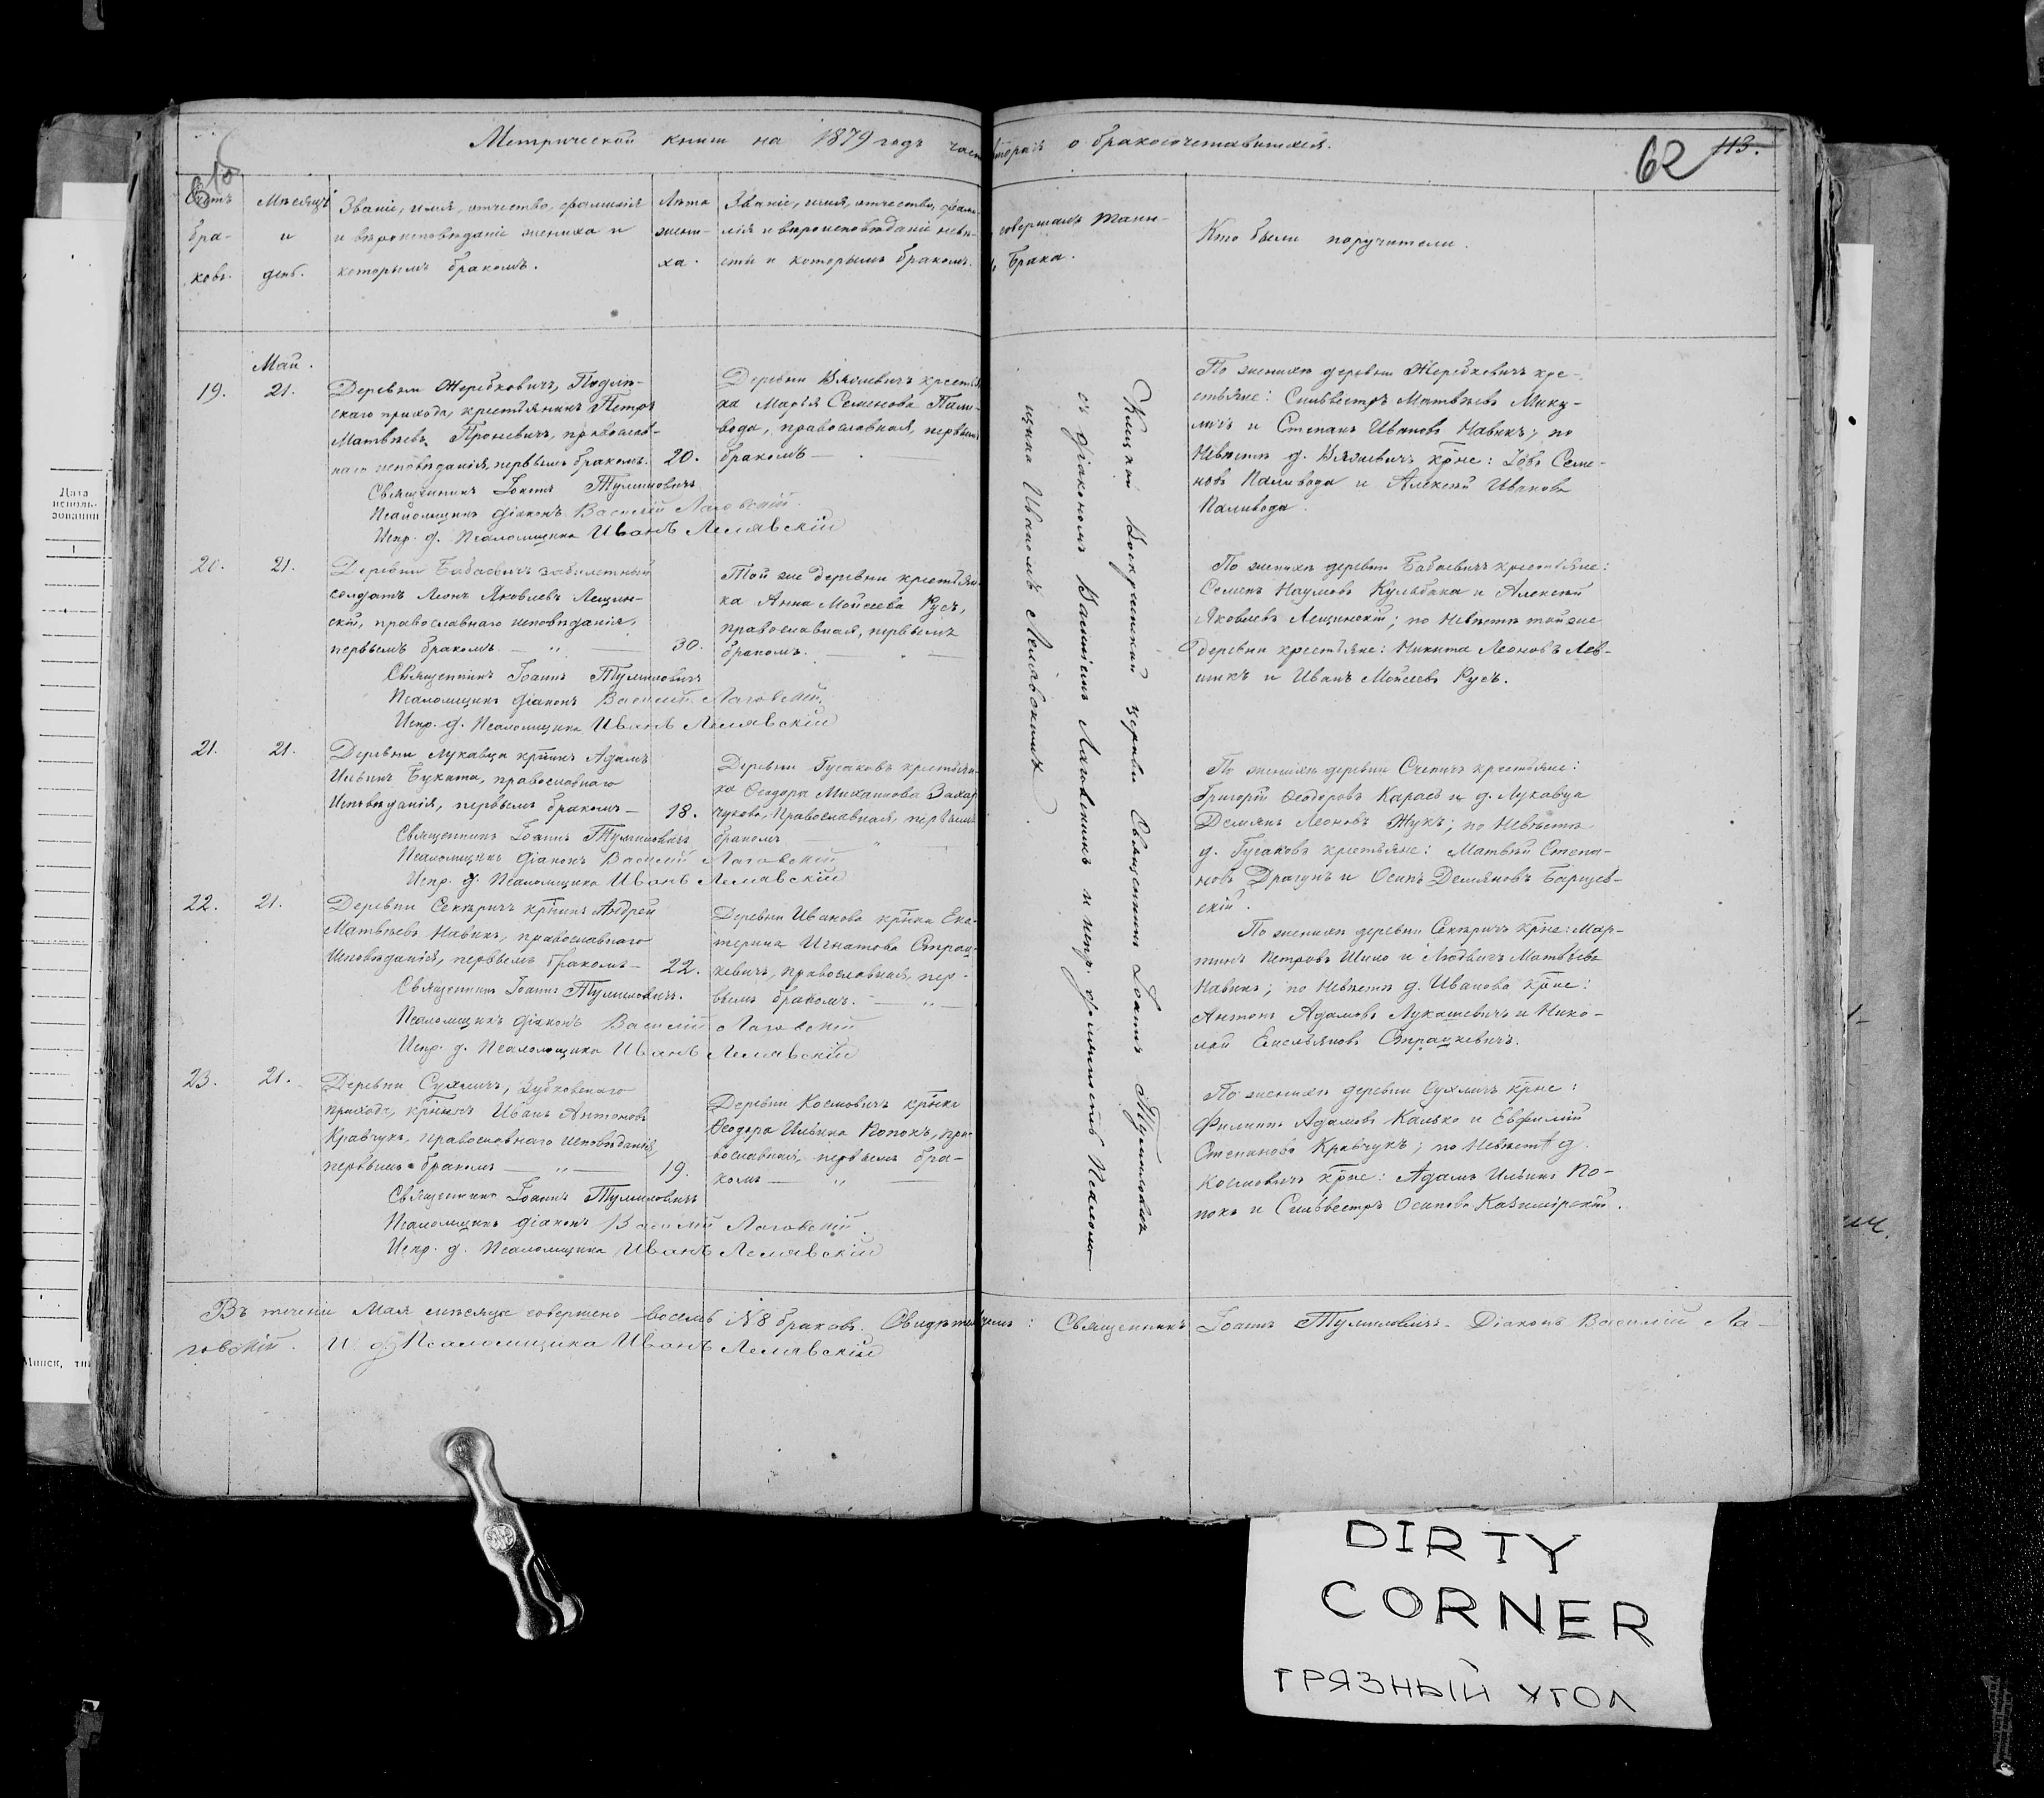 Метрической книги на 1879 годъ часть вторая о бракосочетавшихся.
62 113.
Счетъ браковъ.
Мѣсяцъ и день.
Званіе, имя, отчество, фамилія
и вѣроисповѣданіе жениха и
которымъ бракомъ.
Лѣта
жени-
ха.
Званіе, имя, отчество, фами-
лія и вѣроисповѣданіе невѣ-
сты и которымъ бракомъ.
совершалъ таин-
Брака.
Кто были поручители.
Май.
19. 21.
Деревни Жеребковичъ, Подлѣ-
скаго прихода, крестьянинъ Петръ
Матвѣевъ Проневичъ, православ-
наго исповѣданія, первымъ бракомъ. 20.
Священникъ Іоаннъ Тумиловичъ
Псаломщикъ діаконъ Василій Лаговскій.
Испр. д. Псаломщика Иванъ Лелявскій
ка Марья Семенова Пали-
вода, православная, первымъ
бракомъ
По женихѣ деревни Жеребковичъ кре-
стьяне: Сильвестръ Матвѣевъ Мику-
личъ и Степанъ Ивановъ Навикъ; по
новъ Паливода и Алексѣй Ивановъ
Паливода.
20. 21.
Деревни Бабаевичъ забилетный
солдатъ Леонъ Яковлевъ Лещин-
скій, православнаго исповѣданія,
первымъ бракомъ — „ — 30.
Священникъ Іоаннъ Тумиловичъ
Псаломщикъ діаконъ Василій Лаговскій.
Испр. д. Псаломщика Иванъ Лелявскій
Той же деревни крестьян-
ка Анна Мойсеева Русъ,
православная, первымъ
бракомъ.
По женихѣ деревни Бабаевичъ крестьяне:
Семенъ Наумовъ Кульбака и Алексѣй
Яковлевъ Лещинскій; по невѣстѣ той же
деревни крестьяне: Никита Леоновъ Лев-
шикъ и Иванъ Мойсеевъ Русъ.
21. 21.
Деревни Лукавца кр̃нинъ Адамъ
Ильинъ Буката, православнаго
Исповѣданія, первымъ бракомъ — 18.
Священникъ Іоаннъ Тумиловичъ
Псаломщикъ діаконъ Василій Лаговскій
Испр. д. Псаломщика Иванъ Лелявскій
Деревни Гусаковъ крестьян-
ка Ѳеодора Михаилова Захар-
чукова, Православная, первымъ
бракомъ
Григорій Ѳеодоровъ Карась и д. Лукавца
Демьянъ Леоновъ Жукъ; по Невѣстѣ
д. Гусаковъ крестьяне: Матвѣй Степа-
новъ Драгунъ и Осипъ Демьяновъ Барщев-
скій.
22. 21.
Деревни Секеричъ кр̃нинъ Андрей
Матвѣевъ Навикъ, православнаго
Исповѣданія, первымъ бракомъ — 22.
Священникъ Іоаннъ Тумиловичъ.
Псаломщикъ діаконъ Василій Лаговскій
Испр. д. Псаломщика Иванъ Лелявскій
Деревни Иванова кр̃нка Ека-
терина Игнатова Страш-
кевичъ, православная, пер-
вымъ бракомъ. — „ —
По женихѣ деревни Секеричъ кр̃не: Мар-
тинъ Петровъ Шило и Людвигъ Матвѣевъ
Навикъ; по невѣстѣ д. Иванова кр̃не:
Антонъ Адамовъ Лукашевичъ и Нико-
лай Емельяновъ Страшкевичъ.
23. 21.
Деревни Сухличъ, Зубковскаго
прихода, кр̃нинъ Иванъ Антоновъ
Кравчукъ, православнаго исповѣданія,
первымъ бракомъ — „ — 19.
Священникъ Іоаннъ Тумиловичъ
Псаломщикъ діаконъ Василій Лаговскій.
Испр. д. Псаломщика Иванъ Лелявскій
Деревни Космовичъ кр̃нка
Ѳеодора Ильина Попокъ, пра-
вославная, первымъ бра-
комъ — „ —
По женихѣ деревни Сухличъ кр̃не:
Филиппъ Адамовъ Калько и Евфимій
Степановъ Кравчукъ; по Невѣстѣ д.
Космовичъ кр̃не: Адамъ Ильинъ По-
покъ и Сильвестръ Осиповъ Казимірскій.
Клецкой Воскресенской церкви Священникъ Іоаннъ Тумиловичъ
съ діакономъ Василіемъ Лаговскимъ и испр. должность Псалом-
щика Иваномъ Лелявскимъ.
Въ теченіи Мая мѣсяца совершено восемь № 8 браковъ. Свидѣтельствуемъ: Священникъ Іоаннъ Тумиловичъ. Діаконъ Василій Ла-
говскій. И. д. Псаломщика Иванъ Лелявскій
Дата
исполь-
зования
1
Минск, тип
DIRTY
CORNER
ГРЯЗНЫЙ УГОЛ